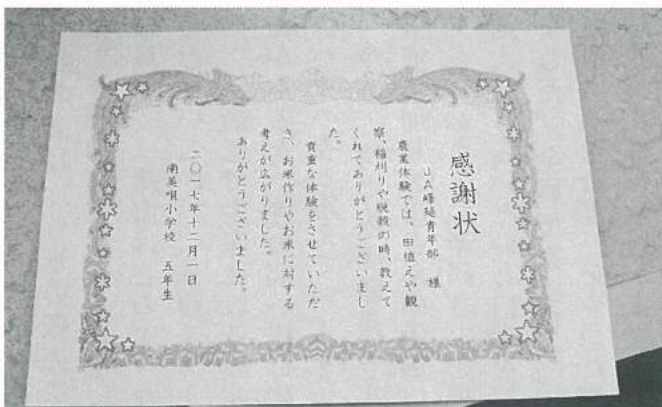 感謝状
JA峰延青年部 様
農業体験では、田植えや観
察、稲刈りや脱穀の時、教えて
くれてありがとうございまし
た。
貴重な体験をさせていただ
き、お米作りやお米に対する
考えが広がりました。
ありがとうございました。
二〇一七年十二月一日
南美唄小学校 五年生